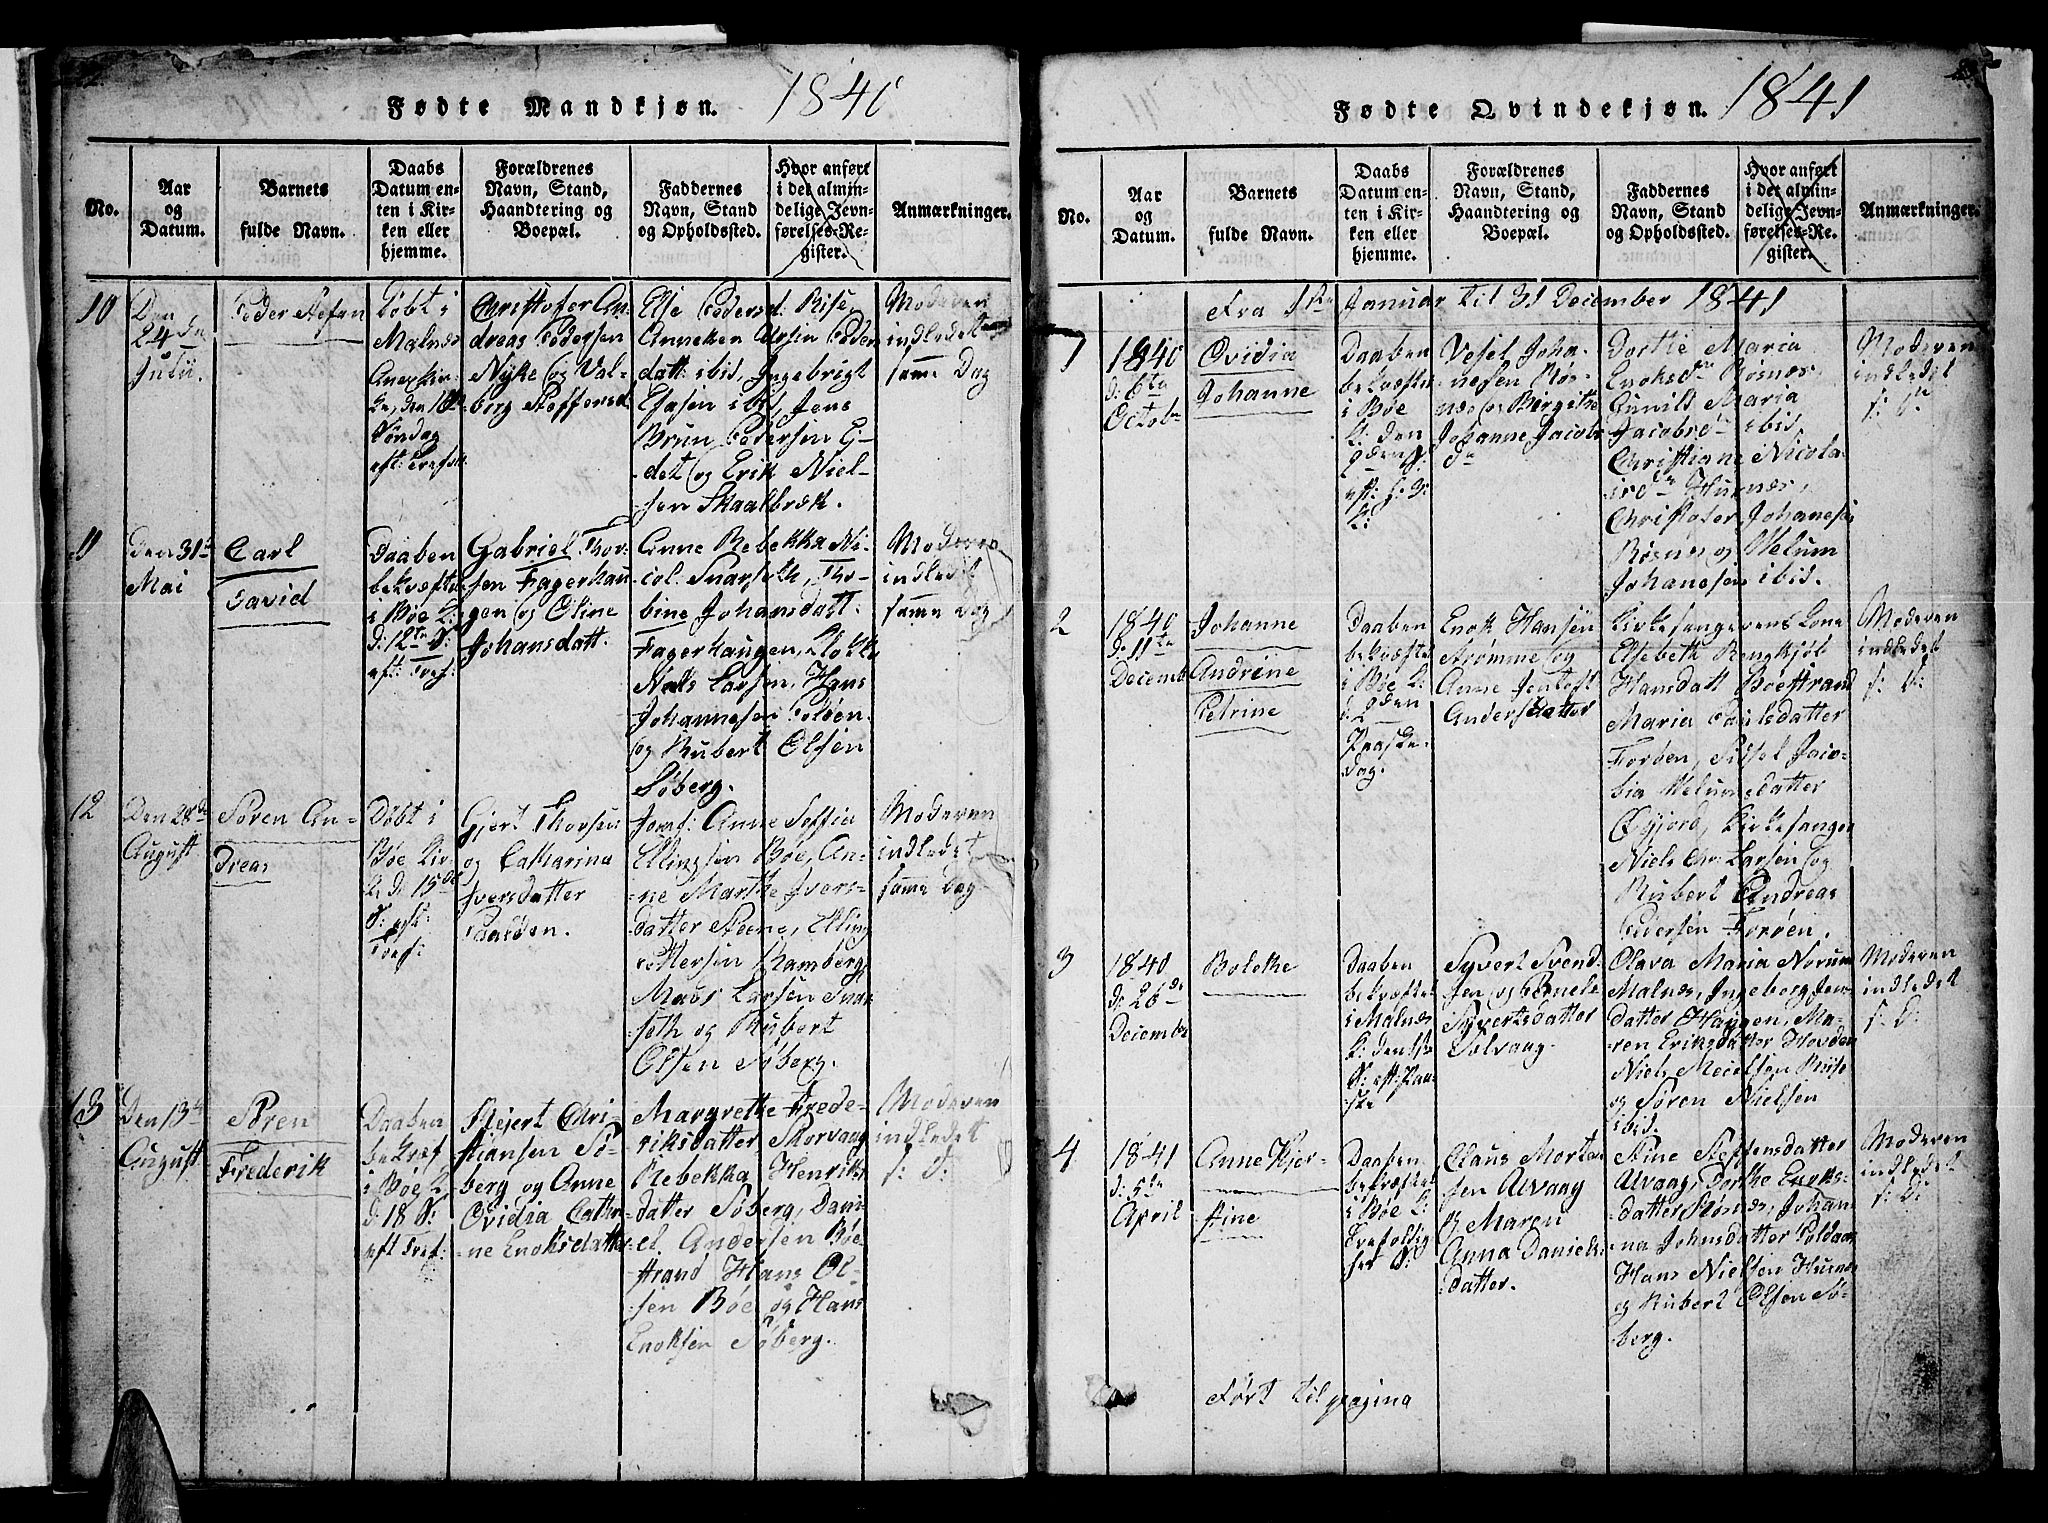 Fødte Mandkjøn. 1840
No.
Aar
og
Datum.
Barnets
fulde Navn.
Daabs
Datum en-
ten i Kir-
ken eller
hjemme.
Forældrenes
Navn, Stand,
Haandtering og
Boepæl.
Faddernes
Navn, Stand
og Opholdssted.
Hvor anført
i det almin-
delige Jevn-
førelses-Re-
gister.
Anmærkninger.
10
Den
24de
Julii.
Peder Stefen
Døbt i
Malnæs
Anexkir-
ke, den 10de
Søndag
eft: Trefol:
Christofer An-
dreas Pedersen
Nyke og Val-
berg Steffensd
Else Pedersd: Riise,
Anneken Peders
datt: ibid, Ingebrigt
Esasen ibid, Jens
Brun Pedersen Ej-
det og Erik Niel-
sen Skaalbræk.
Moderen
indledet
samme Dag
11
Den 31te
Mai
Carl
David
Daaben
bekræftet
i Bøe K:
d: 12te S:
eft: Tref:
Gabriel Thor-
sen Fagerhau-
gen og Oline
Johansdatt.
Anne Rebekka Ni-
col: Snarseth, Tho-
bine Johansdatt.
Fagerhaugen, Klokker
Niels Larsen, Hans
Johannesen Poløen
og Rubert Olsen
Søberg.
Moderen
indledet
samme Dag
12
Den 28de
August
Søren An-
dreas
Døbt i
Bøe Kir-
ke d: 15de
S: eft:
Tref:
Gjert Thorsen
og Catharina
Iversdatter
Anne Soffia
Ellingsen Bøe, An-
ne Marthe Ivers-
datter Steene, Elling
Pettersen Ramberg,
Mads Larsen Snar-
seth og Rubert
Olsen Søberg.
Moderen
indledet
samme Dag
13
Den 13de
August
Søren
Frederik
Daaben
bekræf
i Bøe K:
d: 18 S:
eft Tref:
Mejert Chri-
stiansen Sø-
berg og Anne
Ovidia Cathri-
ne Enoksdatter
Margrethe Frede-
riksdatter Skorvaag
Rebekka Henriks-
datter Søberg, Dani-
el Andersen Bøe-
strand Hans Ol-
sen Bøe og Hans
Enoksen Søberg.
Moderen
indledet
s: D:
Fødte Qvindekjøn. 1841
No.
Aar
og
Datum.
Barnets
fulde Navn.
Daabs
Datum en-
ten i Kir-
ken eller
hjemme.
Forældrenes
Navn, Stand,
Haandtering og
Boepæl.
Faddernes
Navn, Stand
og Opholdssted.
Hvor anført
i det almin-
delige Jevn-
førelses-Re-
gister.
Anmærkninger.
Fra 1ste Januar til 31 December 1841
1
1840
d: 6te
Octob:
Ovidia
Johanne
Daaben
bekræftet
i Bøe
K: den
Vesel Joha-
nesen Røs-
næs og Birgithe
Johanne Jacobs
Dr
Dorthe Maria
Enoksdr Røsnæs
Gunild Maria
Jacobsdr ibid,
Christiane Nicola-
isdr Hurnæs,
Christofer Johanesen
Røsnæs og Velum
Johanesen ibid.
Moderen
indledet
s: D:
2
1840
d: 11te
Decemb:
Johanne
Andrine
Petrine
Daaben
bekræftet
i Bøe K:
d: 2den
Paaske-
dag.
Enok Hansen
Strømme og
Anne Jentoft
Andersdatter
Kirkesangerens Kone
Elsebeth
Hansdatt Bøestrand
Maria Poulsdatter
Forøen, Sidsel Jaco-
bia Velumsdatter
Kirkesanger
Niels Chr: Larsen og
Rubert Andreas
Pedersen Forøen.
Moderen
indledet
s: D:
3
1840
d: 26de
December
Bolethe
Daaben
bekræftet
i Malnæs
K: den 1ste
S: eft: Paa-
ske
Syvert Svend-
sen og Pernele
Syvertsdatter
Solvaag.
Olava Maria Norum
Malnæs, Ingeborg Jens
datter Haugen, Ma-
ren Eriksdatter Hovden
Niels Mecelsen Riise
og Søren Nielsen
ibid.
Moderen
indledet
s: D:
4
1841
d: 5te
April
Anne Kjer-
stine
Daaben
bekræftet
i Bøe K:
Trefoldig
hed S:
Claus Morten
sen Alvaag
og Maren
Anna Daniels-
datter.
Stine Steffensdatter
Alvaag, Dorthe Enoks-
datter Røsnæs, Johan-
na Johnsdatter
Hans Nielsen Hurnæs
og Rubert Olsen Sø-
berg.
Moderen
indledet
s: D:
Ført til pagina